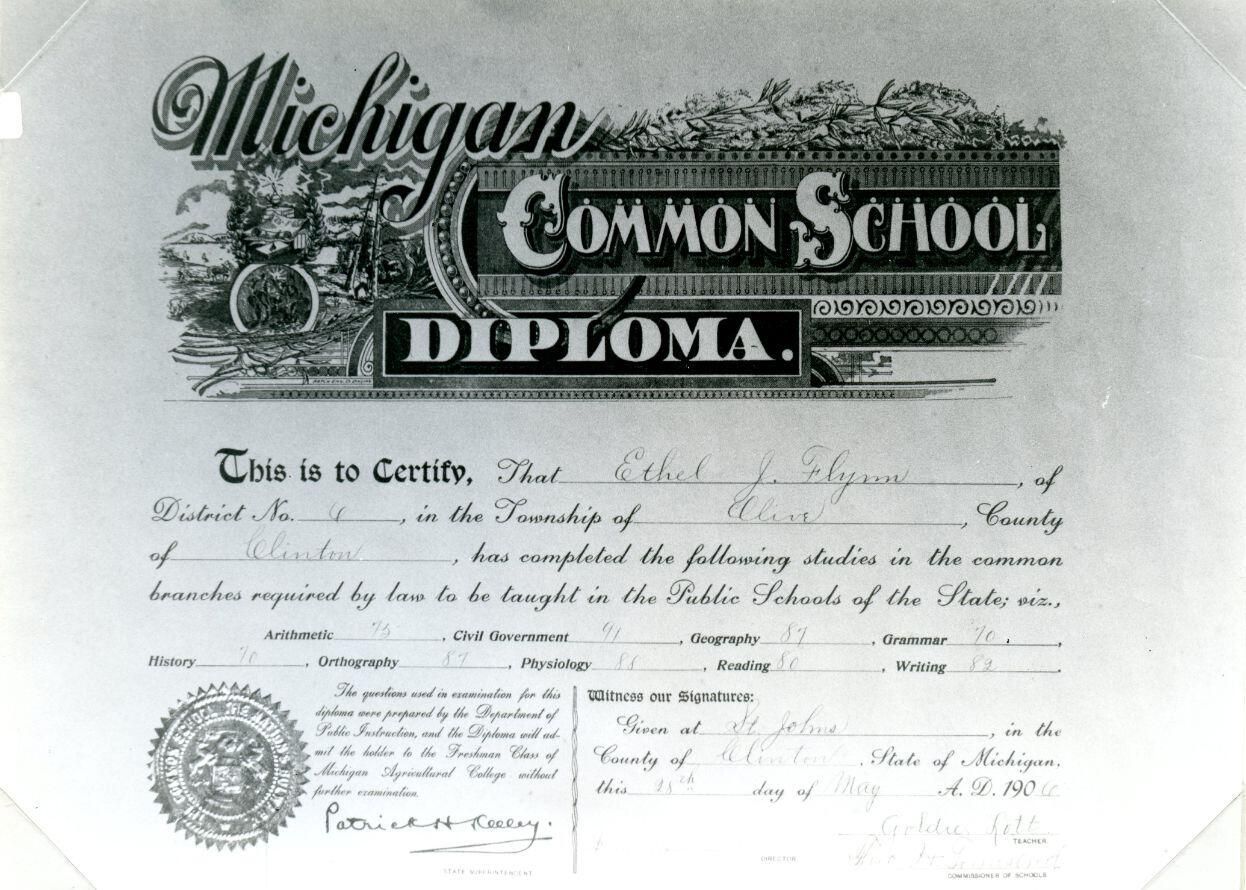 Michigan
COMMON SCHOOL
DIPLOMA.
This is to Certify, That Ethel J. Flynn, of
District No. 6, in the Township of Olive, County
of Clinton, has completed the following studies in the common
branches required by law to be taught in the Public Schools of the State; viz.,
Arithmetic 75, Civil Government 91, Geography 87, Grammar 70,
History 70, Orthography 87, Physiology 88, Reading 80, Writing 82.
The questions used in examination for this
diploma were prepared by the Department of
Public Instruction, and the Diploma will ad-
mit the holder to the Freshman Class of
Michigan Agricultural College without
further examination.
Patrick H Kelley.
STATE SUPERINTENDENT.
Witness our Signatures:
Given at St. Johns, in the
County of Clinton, State of Michigan,
this 28th day of May A. D. 1906
Goldie Lott
TEACHER.
DIRECTOR.
COMMISSIONER OF SCHOOLS.